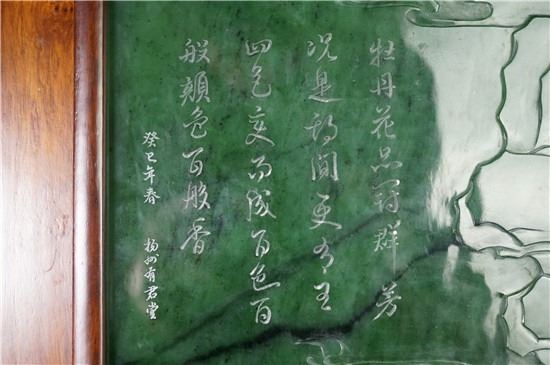 牡丹花品冠群芳
况是期间更有王
四色变而成百色百
般颜色百般香
癸巳年春　扬州有君堂